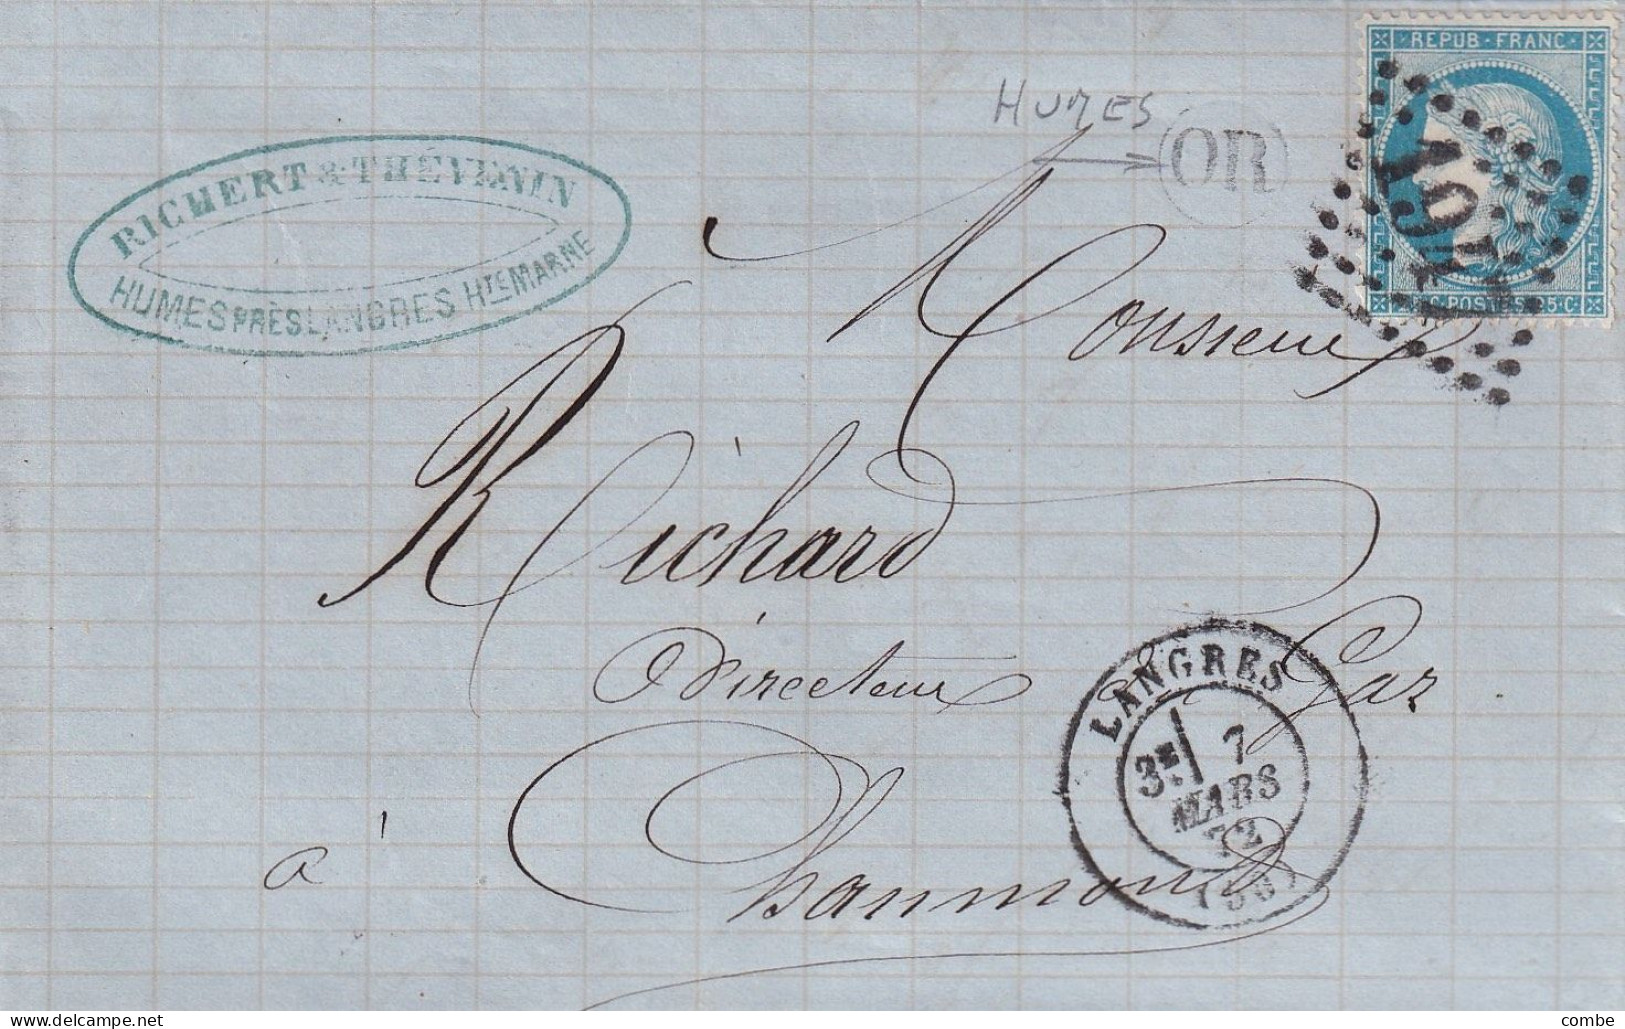 REPUB · FRANC
HUMES
OR
RICHERT & THÉVENIN
HUMES PRÈS LANGRES HTE MARNE
POSTES 25 · C
Monsieur
Richard
Directeur Gaz
à Chaumont
LANGRES
3E 7
MARS
72
combe
www.delcampe.net